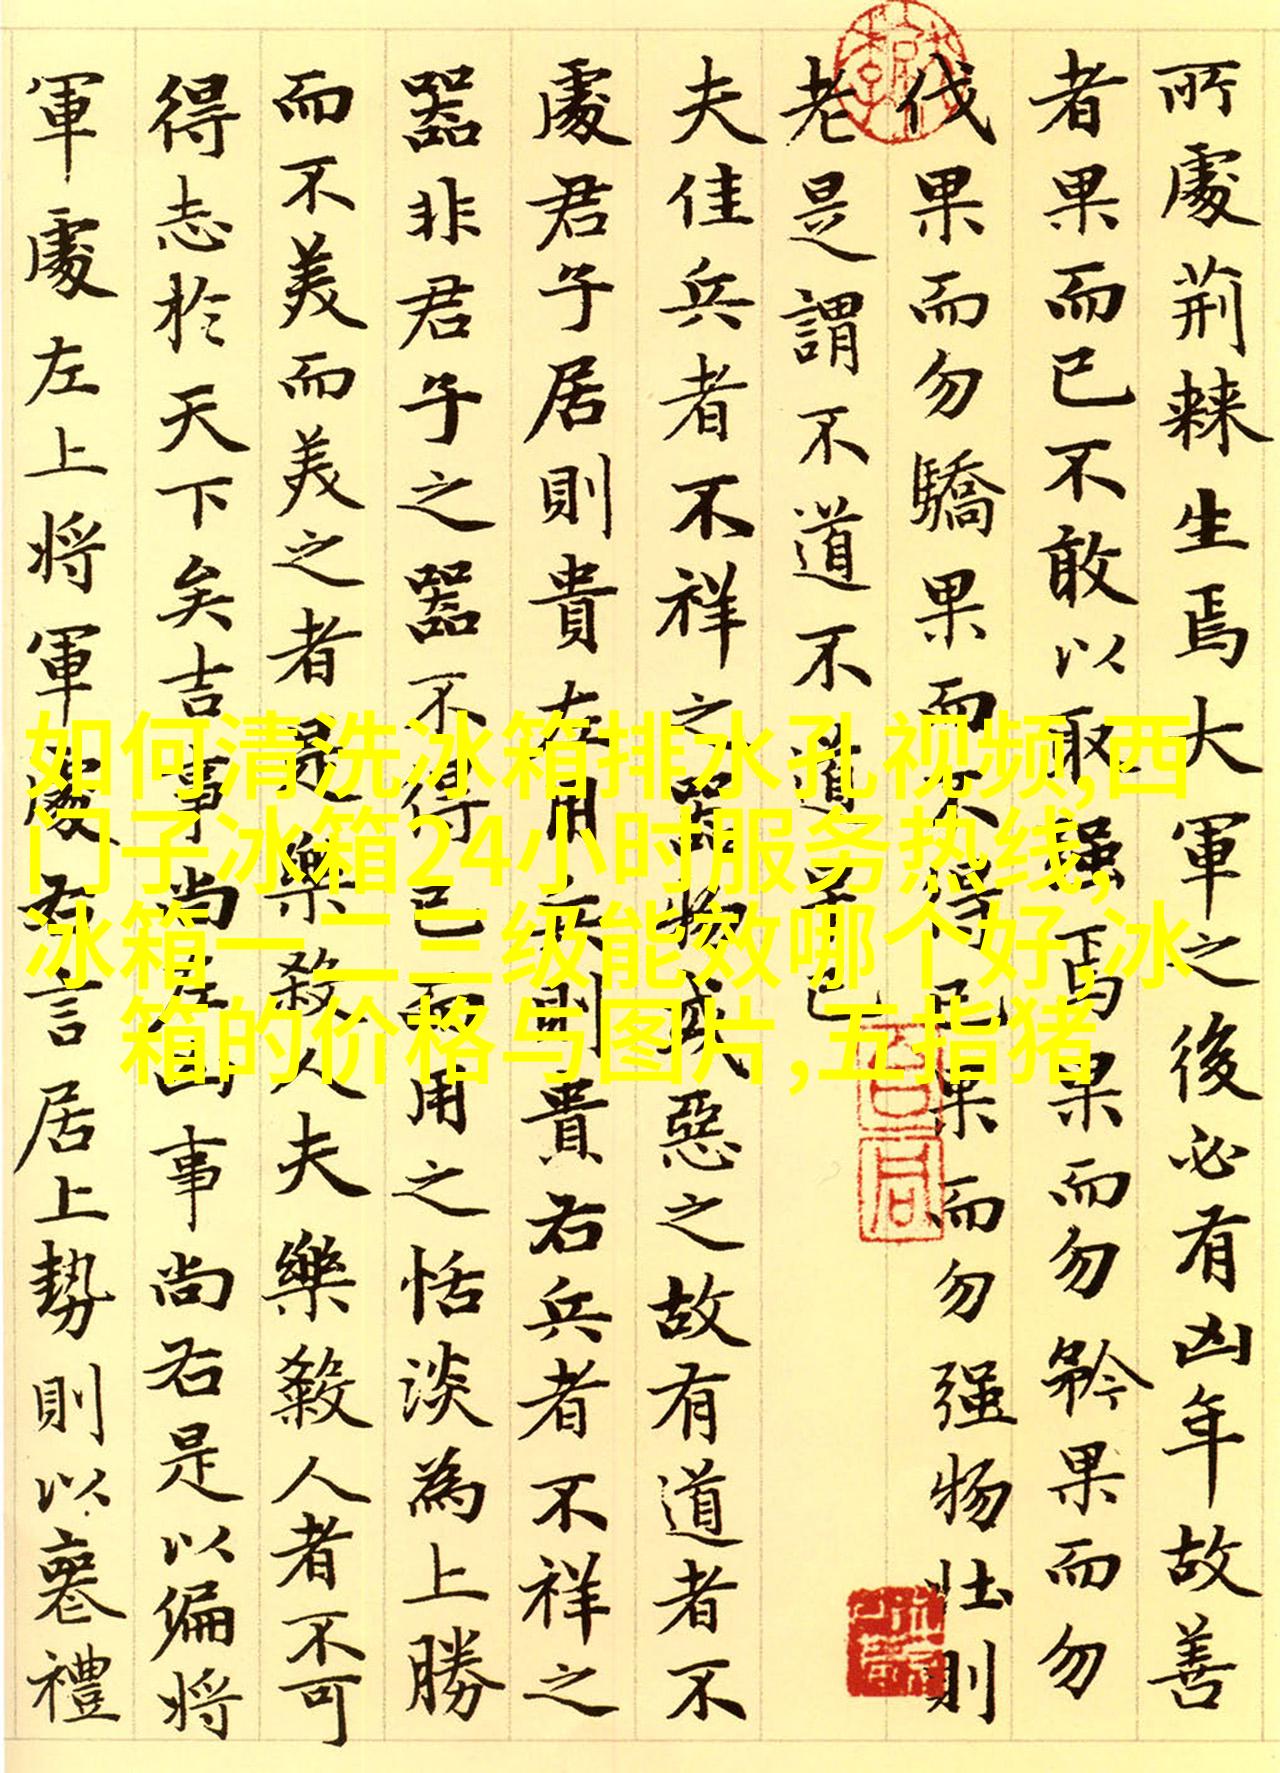 所處荊棘生焉大軍之後必有凶年故善
者果而已不敢以取强焉果而勿矜果而勿
伐果而勿驕果而不得已果而勿强物壯則
老是謂不道不道早已
夫佳兵者不祥之器物或惡之故有道者不
處君子居則貴左用兵則貴右兵者不祥之
器非君子之器不得已而用之恬淡為上勝
而不美而美之者是樂殺人夫樂殺人者不可
得志於天下矣吉事尚左凶事尚右是以偏將
軍處左上將軍處右言居上勢則以喪禮
如何清洗冰箱排水孔视频,西
门子冰箱24小时服务热线,
冰箱一二三级能效哪个好,冰
箱的价格与图片,五指猪